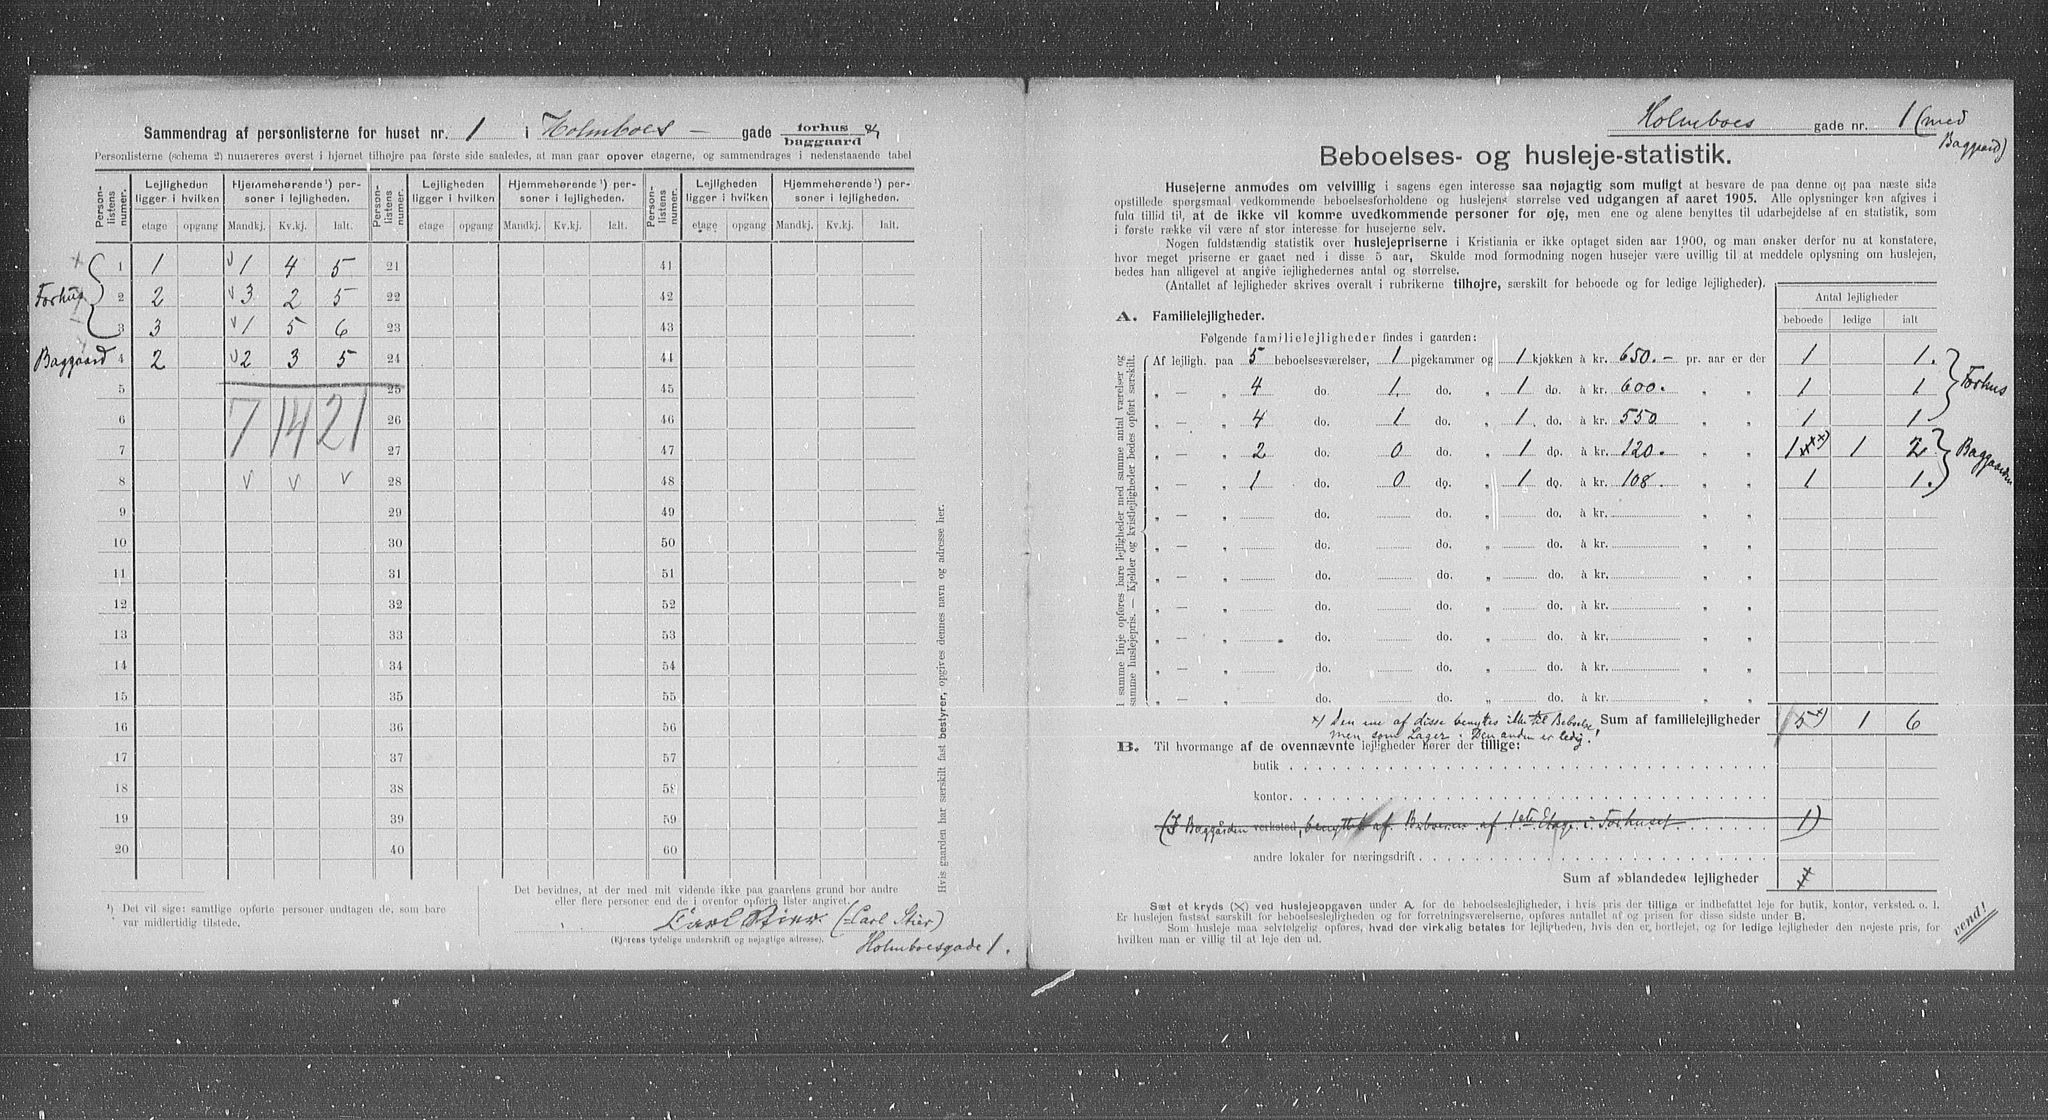 Sammendrag af personlisterne for huset nr. 1 i Holmboes – gade forhus & baggaard
Personlisterne (schema 2) numereres øverst i hjørnet tilhøjre paa første side saaledes, at man gaar opover etagerne, og sammendrages i nedenstaaende tabel
Person-listens numer. Lejligheden ligger i hvilken Hjemmehørende ¹) personer i lejligheden. Person-listens numer. Lejligheden ligger i hvilken Hjemmehørende ¹) personer i lejligheden. Person-listens numer. Lejligheden ligger i hvilken Hjemmehørende ¹) personer i lejligheden.
etage opgang Mandkj. Kv.kj. Ialt. etage opgang Mandkj. Kv.kj. Ialt. etage opgang Mandkj. Kv.kj. Ialt.
1 1 v 1 4 5 21 41
Forhus 2 2 v 3 2 5 22 42
3 3 v 1 5 6 23 43
Baggaard 4 2 v 2 3 5 24 44
5 25 45
6 7 14 21 26 46
7 27 47
8 v v v 28 48
9 29 49
10 30 50
11 31 51
12 32 52
13 33 53
14 34 54
15 35 55
16 36 56
17 37 57
18 38 58
19 39 59
20 40 60
Hvis gaarden har særskilt fast bestyrer, opgives dennes navn og adresse her.
¹) Det vil sige: samtlige opførte personer undtagen de, som bare var midlertidig tilstede.
Det bevidnes, at der med mit vidende ikke paa gaardens grund bor andre
eller flere personer end de i ovenfor opførte lister angivet.
(Carl Stier)
(Ejerens tydelige underskrift og nøjagtige adresse).
Holmboesgade 1.
Holmboes gade nr. 1 (med
Baggaard)
Beboelses- og husleje-statistik.
Husejerne anmodes om velvillig i sagens egen interesse saa nøjagtig som muligt at besvare de paa denne og paa næste side
opstillede spørgsmaal vedkommende beboelsesforholdene og huslejens størrelse ved udgangen af aaret 1905. Alle oplysninger kan afgives i
fuld tillid til, at de ikke vil komme uvedkommende personer for øje, men ene og alene benyttes til udarbejdelse af en statistik, som
i første række vil være af stor interesse for husejerne selv.
Nogen fuldstændig statistik over huslejepriserne i Kristiania er ikke optaget siden aar 1900, og man ønsker derfor nu at konstatere,
hvor meget priserne er gaaet ned i disse 5 aar, Skulde mod formodning nogen husejer være uvillig til at meddele oplysning om huslejen,
bedes han alligevel at angive lejlighedernes antal og størrelse.
(Antallet af lejligheder skrives overalt i rubrikerne tilhøjre, særskilt for beboede og for ledige lejligheder).
Antal lejligheder
beboede ledige ialt
A. Familielejligheder.
Følgende familielejligheder findes i gaarden:
I samme linje opføres bare lejligheder med samme antal værelser og samme huslejepris. — Kjelder og kvistlejligheder bedes opført særskilt.
Af lejligh. paa 5 beboelsesværelser, 1 pigekammer og 1 kjøkken à kr. 650.- pr. aar er der 1 1.
„ — „ 4 do. 1. do. „ 1 do. à kr. 600. „ „ 1 1 Forhus
„ — „ 4 do. 1 do. „ 1. do. à kr. 550 „ „ 1 1
„ — „ 2 do. 0 do. „ 1 do. à kr. 120. „ „ 1 xx) 1 2 Baggaarden
„ — „ 1 do. 0 do. „ 1 do. à kr. 108. „ „ 1 1.
„ — „ do. do. „ do. à kr. „ „
„ — „ do. do. „ do. à kr. „ „
„ — „ do. do. „ do. à kr. „ „
„ — „ do. do. „ do. à kr. „ „
„ — „ do. do. „ do. à kr. „ „
„ — „ do. do. „ do. à kr. „ „
„ — „ do. do. „ do. à kr. „ „
x) Den ene af disse benyttes ikke til Beboelse Sum af familielejligheder 5 x) 1 6
men som Lager. Den anden er ledig!
B. Til hvormange af de ovennævnte lejligheder hører der tillige:
butik
kontor
(I Baggården verksted, benyttet af Beboeren af 1ste Etage i Forhuset 1)
andre lokaler for næringsdrift
Sum af »blandede« lejligheder
Sæt et kryds (×) ved huslejeopgaven under A. for de beboelseslejligheder, i hvis pris der tillige er indbefattet leje for butik, kontor, verksted. o. l.
Er huslejen fastsat særskilt for beboelseslejligheden og for forretningsværelserne, opføres antallet af og prisen for disse sidste under B.
Som husleje maa selvfølgelig opføres, hvad der virkalig betales for lejligheden, hvis den er bortlejet, og for ledige lejligheder den nøjeste pris, for
hvilken man er villig til at leje den ud.
vend!